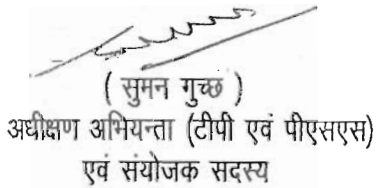 ( सुमन गुच्छ )
अधीक्षण अभियन्ता (टीपी एवं पीएसएस)
एवं संयोजक सदस्य